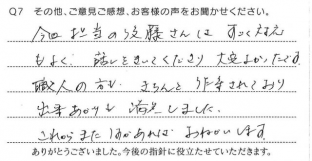 Q7 その他、ご意見ご感想、お客様の声をお聞かせください。
今回担当の後藤さんはすごく対応
もよく 話しをきいてくださり 大変よかったです。
職人の方も きちんと作業されており
出来あがりも 満足しました。
これからまた 何かあれば おねがいします
ありがとうございました。今後の指針に役立たせていただきます。